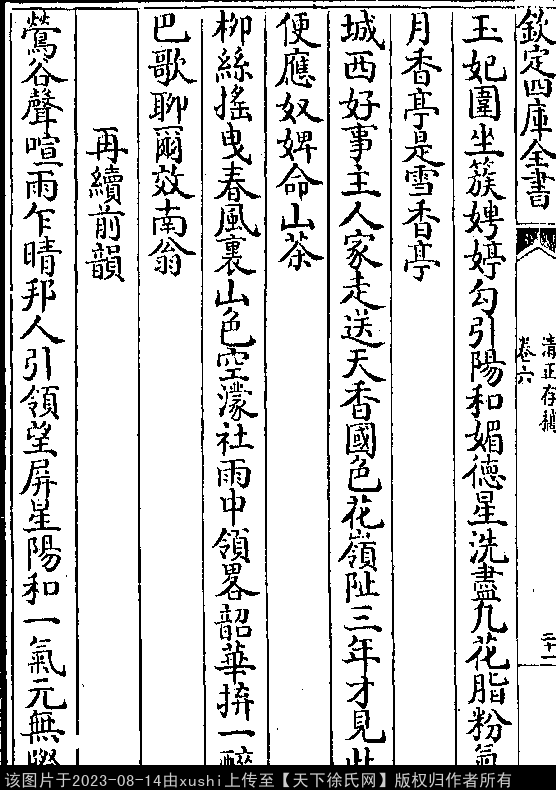 欽定四庫全書
清正存稿
卷六
二十一
玉妃圍坐簇娉婷勾引陽和媚德星洗盡凡花脂粉氣
月香亭是雪香亭
城西好事主人家走送天香國色花嶺阯三年才見此
便應奴婢命山茶
柳絲搖曳春風裏山色空濛社雨中領畧韶華拚一醉
巴歌聊爾效南翁
再續前韻
鶯谷聲喧雨乍晴邦人引領望屏星陽和一氣元無
该图片于2023-08-14由xushi上传至【天下徐氏网】版权归作者所有